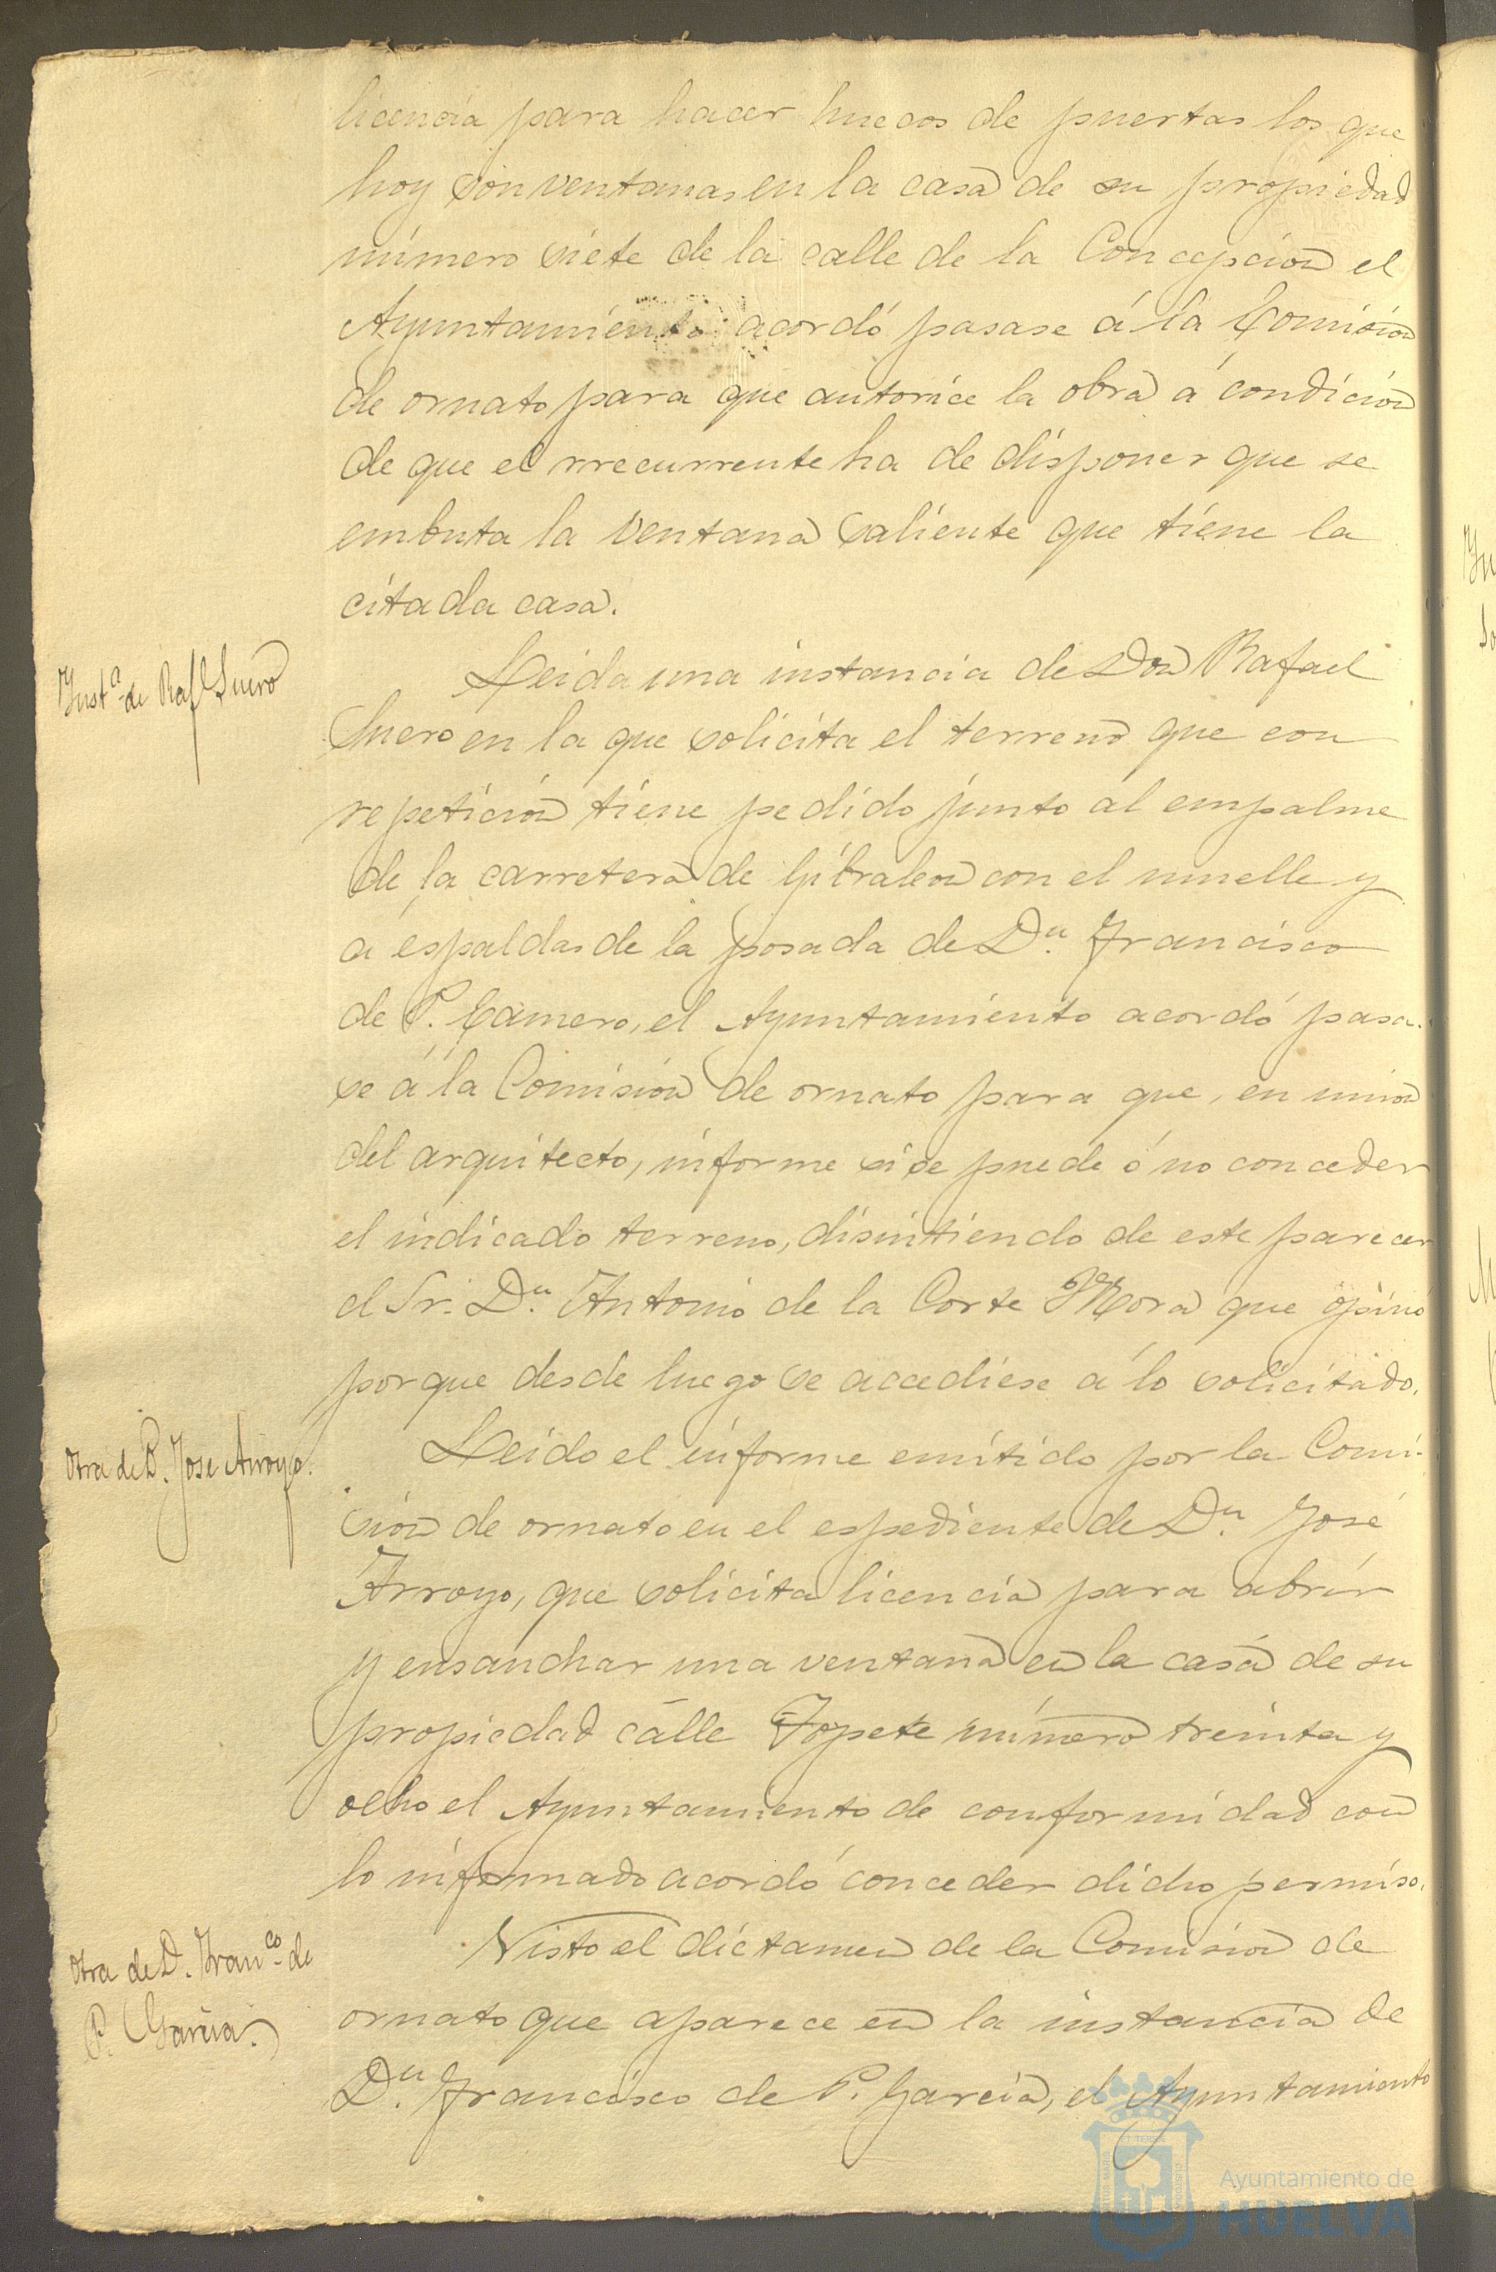 licencia para hacer huecos de puertas los que
hoy son ventanas en la casa de su propiedad
número siete de la calle de la Concepcion el
Ayuntamiento acordó pasase á la Comision
de ornato para que autorice la obra á condición
de que el rrecurrente ha de disponer que se
embuta la ventana saliente que tiene la
citada casa.
Inst.ª de Raf.l Suero
Leida una instancia de Don Rafael
Suero en la que solicita el terreno que con
repetición tiene pedido junto al empalme
de la carretera de Gibraleon con el muelle y
á espaldas de la posada de D.n Francisco
de P. Camero, el Ayuntamiento acordó pasa-
se á la Comisión de ornato para que, en union
del arquitecto, informe si se puede ó no conceder
el indicado terreno, disintiendo de este parecer
el Sr. D.n Antonio de la Corte Mora que opinó
porque desde luego se accediese á lo solicitado.
Otra de D. Jose Arroyo.
Leido el informe emitido por la Comi-
sión de ornato en el espediente de D.n José
Arroyo, que solicita licencia para abrir
y ensanchar una ventana en la casa de su
propiedad calle Topete número treinta y
ocho el Ayuntamiento de conformidad con
lo informado acordó conceder dicho permiso.
Otra de D. Fran.co de
P. Garcia.
Visto el dictamen de la Comision de
ornato que aparece en la instancia de
D.n Francisco de P. Garcia, el Ayuntamiento
Ayuntamiento de
HUELVA